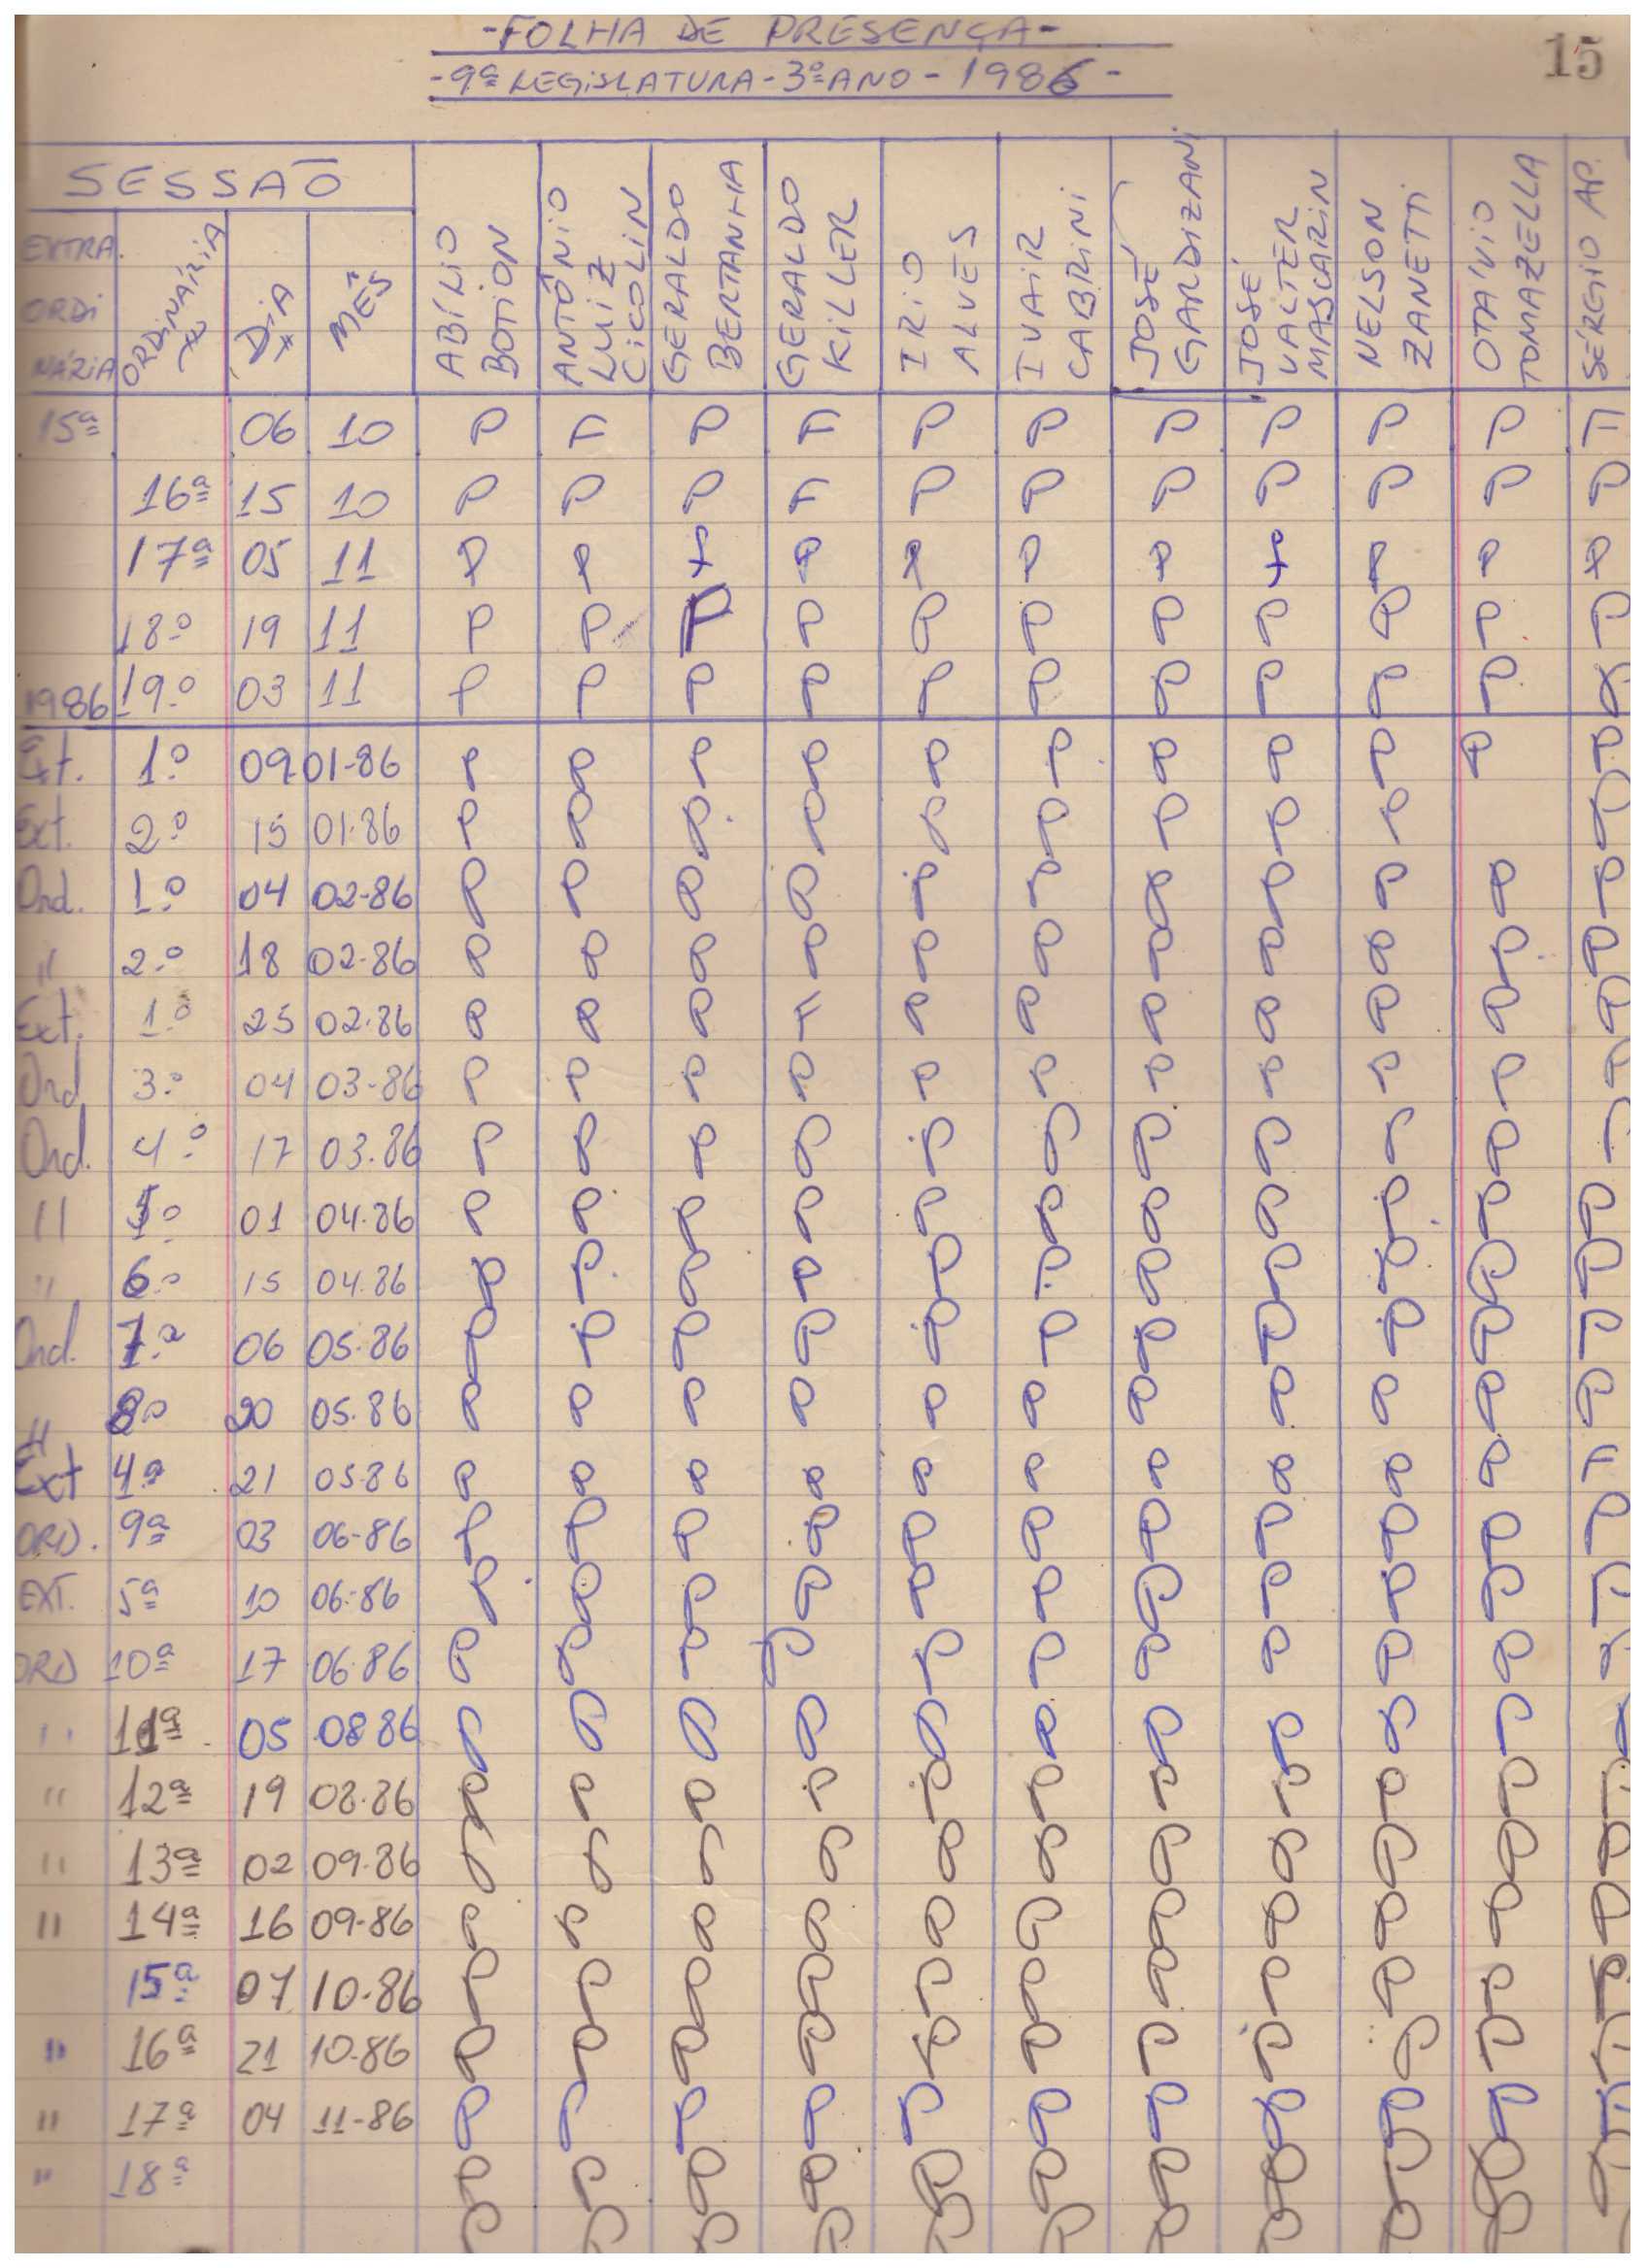 -FOLHA DE PRESENÇA-
-9ª LEGISLATURA - 3º ANO - 1986 -
15
SESSAÕ
EXTRA ORDI NÁRIA ORDINÁRIA DIA MÊS ABÍLIO BOTION ANTÔNIO LUIZ CICOLIN GERALDO BERTANHA GERALDO KILLER IRIO ALVES IVAIR CABRINI JOSÉ GARDIZANI JOSÉ VALTER MASCARIN NELSON ZANETTI OTÁVIO TOMAZELLA SÉRGIO AP.
15ª 06 10 P F P F P P P P P P F
16ª 15 10 P P P F P P P P P P P
17ª 05 11 P P P P P P P P P P P
18º 19 11 P P P P P P P P P P P
1986 19º 03 11 P P P P P P P P P P P
Ext. 1º 09 01-86 P P P P P P P P P P P
Ext. 2º 15 01.86 P P P P P P P P P P
Ord. 1º 04 02-86 P P P P P P P P P P P
" 2º 18 02-86 P P P P P P P P P P P
Ext. 1º 25 02.86 P P P F P P P P P P P
Ord 3º 04 03-86 P P P P P P P P P P P
Ord. 4º 17 03.86 P P P P P P P P P P
" 5º 01 04.86 P P P P P P P P P P P
" 6º 15 04.86 P P P P P P P P P P P
Ord. 7ª 06 05.86 P P P P P P P P P P P
" 8º 20 05.86 P P P P P P P P P P P
Ext 4ª 21 05.86 P P P P P P P P P P F
ORD. 9ª 03 06-86 P P P P P P P P P P P
EXT. 5ª 10 06-86 P P P P P P P P P P
ORD 10ª 17 06.86 P P P P P P P P P P
" 11ª 05 08.86 P P P P P P P P P P
" 12ª 19 08.86 P P P P P P P P P P
" 13ª 02 09.86 P P P P P P P P P P P
" 14ª 16 09-86 P P P P P P P P P P P
15ª 07 10-86 P P P P P P P P P P
" 16ª 21 10-86 P P P P P P P P P P
" 17ª 04 11-86 P P P P P P P P P P
" 18ª P P P P P P P P P P